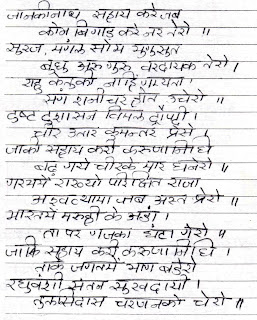 जानकीनाथ सहाय करे जब
कोन बिगाडु करे नर तेरो ॥
सुरज, मंगल सोम भृगुसुत
बुध अरु गुरु वरदायक तेरो ।
राहु केतुकी नाहिं गम्यता
संग शनीचर होत उचेरो ॥
दुष्ट दुशासन विमल द्रौपदी
चीर उतार कुमन्तर प्रेरो ।
जाकी सहाय करी करुणानिधि
बढ़ गये चीरके भार घनेरो ॥
गरभमें राख्यो परिक्षित राजा
अश्वत्थामा जब अस्त्र प्रेरो ।
भारतमें भरुही के अंडा
ता पर गजका घंटा गेरो ॥
जाकि सहाय करी करुणानिधि ।
ताके जगतमें भाग बडेरो
रघुवंशी संतन सुखदायी ।
तुलसीदास चरननको चेरो ॥